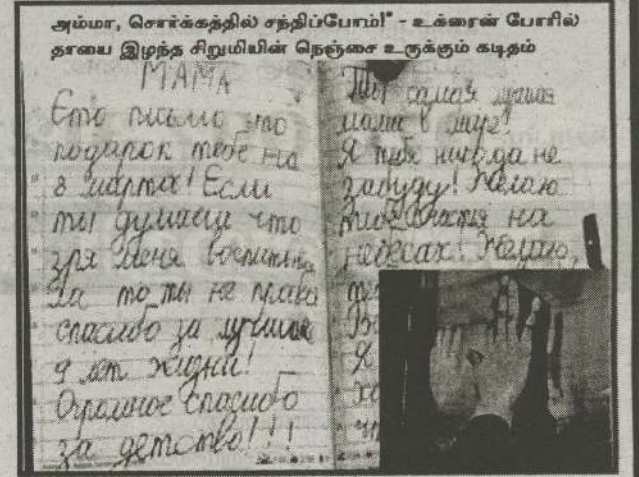 அம்மா, சொர்க்கத்தில் சந்திப்போம்!" - உக்ரைன் போரில்
தாயை இழந்த சிறுமியின் நெஞ்சை உருக்கும் கடிதம்
МАМА
Ето письмо это
подарок тебе на
8 марта! Если
ты думаеш что
зря меня воспитыва
ла то ты не права
спасибо за лучшие
9 лет жизни!
Огромное спасибо
за детство!!!
Ты самая лучшая
мама в мире!
Я тебя никогда не
забуду! Желаю
тебе счастья на
небесах! Желаю,
Я